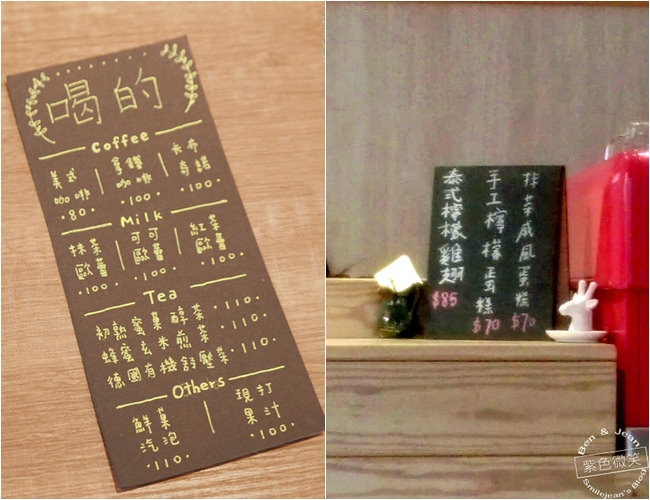 喝的
Coffee
美式咖啡 拿鐵咖啡 卡布奇諾
·80· ·100· ·100·
Milk
抹茶歐蕾 可可歐蕾 紅茶歐蕾
·100· ·100· ·100·
Tea
初熟蜜菓醇茶 ·110·
蜂蜜玄米煎茶 ·110·
德國有機舒壓茶 ·110·
Others
鮮菓汽泡 現打果汁
·110· ·100·
抹茶戚風蛋糕 $70
手工檸檬蛋糕 $70
泰式檸檬雞翅 $85
Ben & Jean
紫色微笑
Smilejean's Blog